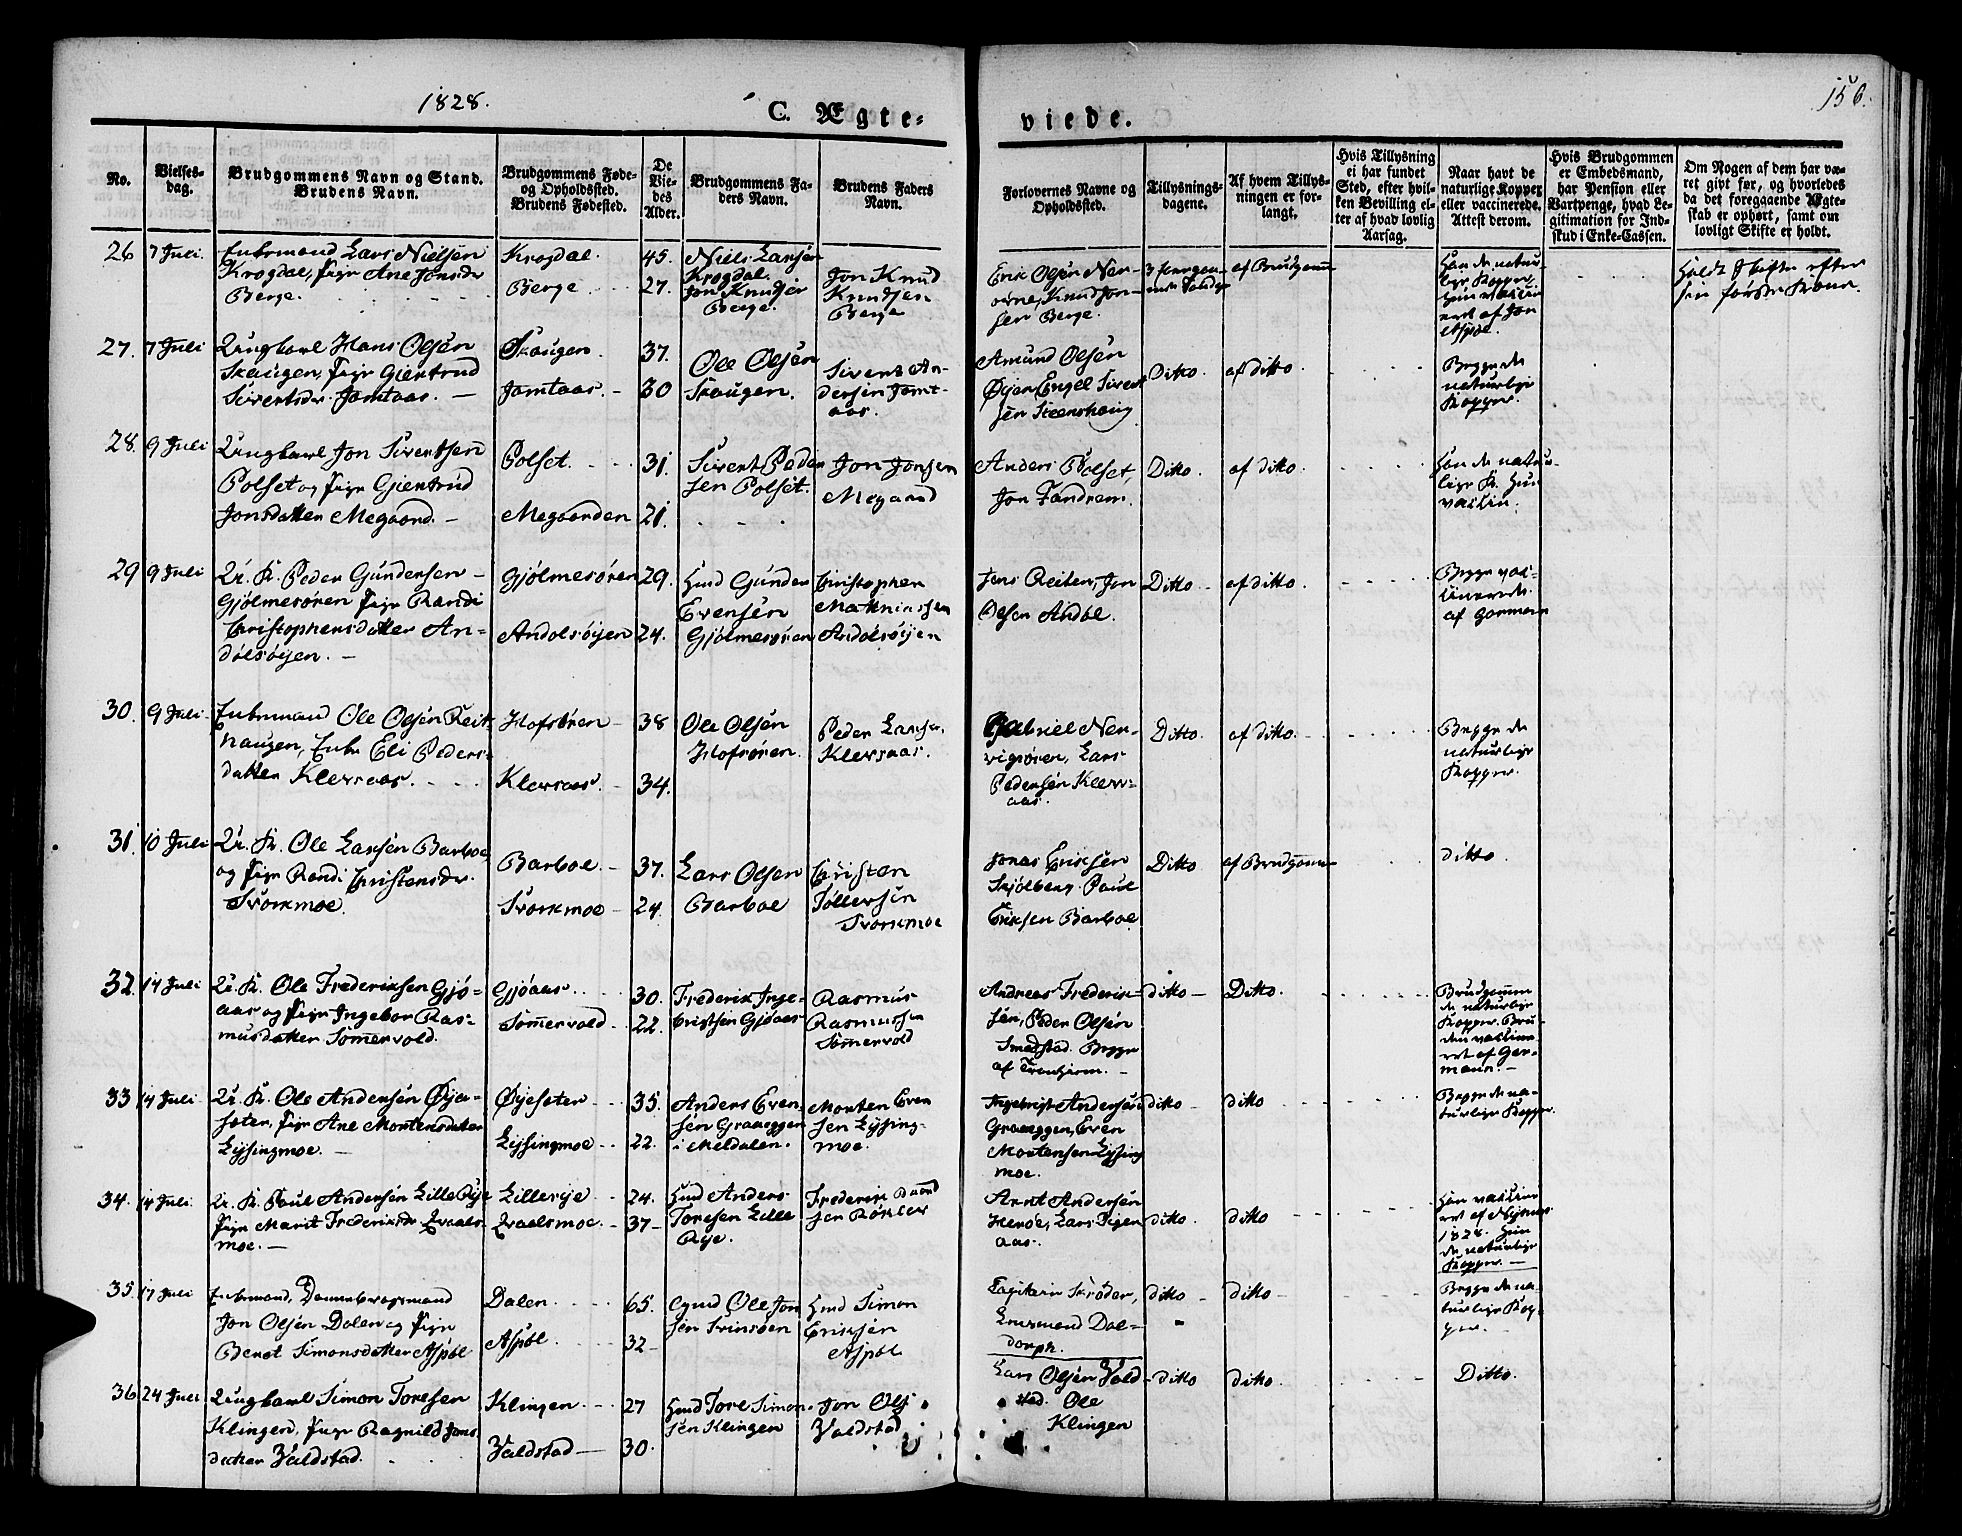 1828.
C. Ægte-
viede.
156.
No.
Vielses-
dag.
Brudgommens Navn og Stand.
Brudens Navn.
Brudgommens Føde-
og Opholdssted.
Brudens Fødested.
De
Vie-
des
Alder.
Brudgommens Fa-
ders Navn.
Brudens Faders
Navn.
Forlovernes Navne og
Opholdssted.
Tillysnings-
dagene.
Af hvem Tillys-
ningen er for-
langt.
Hvis Tillysning
ei har fundet
Sted, efter hvil-
ken Bevilling el-
ler af hvad lovlig
Aarsag.
Naar havt de
naturlige Kopper
eller vaccinerede.
Attest derom.
Hvis Brudgommen
er Embedsmand,
har Pension eller
Vartpenge, hvad Le-
gitimation for Ind-
skud i Enke-Cassen.
Om Nogen af dem har væ-
ret gift før, og hvorledes
da det foregaaende Ægte-
skab er ophørt, samt om
lovligt Skifte er holdt.
26 7 Juli.
Enkemand Lars Nielsen
Krogdal, Pige Ane Jonsdr
Berge.
Krogdal. 45.
Berge 27.
Niels Larsen
Krogdal.
Jon Knudsen
Berge.
Jon Knud
Knudsen
Berge
Erik Olsen
Knud Jon-
sen Berge.
af Brudgomm
Han de natur-
lige Kopper,
af Jon
Holdt Skifte efter
sin første Kone.
27. 7 Juli
Ungkarl Hans Olsen
Skaugen, Pige Giertrud
Sivertsdr. Jamtaas.
Skaugen. 37.
Jamtaas. 30
Ole Olsen
Skaugen.
Sivert An-
dersen Jamt-
aas.
Amund Olsen
Øien, Engel Sivert
sen Steenshaug
Ditto. af ditto.
Begge de
naturlige
Kopper.
28. 9 Juli
Ungkarl Jon Sivertsen
Polset og Pige Giertrud
Jonsdatter Megaard.
Polset. 31.
Megaarden 21.
Sivert Peder
sen Polset.
Jon Jonsen
Megaard
Anders Polset,
Jon Fandrem.
Ditto af ditto.
Han de natur-
lige K. Hun
vaccin.
29 9 Juli
U. K. Peder Gundersen
Gjølmesøren Pige Randi
Christophersdatter An-
dølsøyen.
Gjølmesøren 29.
Andolsøyen 24.
Hmd Gunder
Evensen
Gjølmesøren
Christopher
Andølsøyen
Jens Reiten, Jon
Olsen Andøl.
Ditto af ditto.
Begge vac-
cinerede
af Gormann
30. 9 Juli
Enkemand Ole Olsen Reit
haugen, Enke Eli Peders-
datter Klevsaas.
Hofsøren 38
Klevsaas. 34.
Ole Olsen
Hofsøren.
Peder Larsen
Klevsaas.
Gabriel Ner-
vigsøren, Lars
Pedersen Klevs-
aas.
Ditto. af ditto.
Begge de
naturlige
Kopper.
31. 10 Juli
U. K. Ole Larsen Barboe
og Pige Randi Christensdr.
Svorkmoe.
Barboe. 37.
Svorkmoe 24.
Lars Olsen
Barboe
Christen
Tøllersen
Svorkmoe
Jonas Eriksen
Skjølberg. Paul
Eriksen Barboe
Ditto af Brudgomm
ditto
32. 14 Juli
U. K. Ole Frederiksen Gjø-
aas og Pige Ingebor Ras-
musdatter Sommervold.
Gjøaas 30.
Sommervold 22.
Frederik Inge-
brictsen Gjøaas
Rasmus
Rasmussen
Sommervold
Andreas Frederik-
sen, Peder Olsen
Smedstad. Begge
af Trondhjem.
ditto Ditto.
Brudgomm
de naturlige
Kopper. Bru-
den vaccine-
ret af Gor-
mann.
33 14 Juli
U. K. Ole Andersen Øye-
seter, Pige Ane Mortensdatter
Lysingmoe.
Øyeseter 35.
Lysingmoe 22.
Anders Even-
sen Graaeggen
i Meldalen.
Morten Even
sen Lysing-
moe.
Ingebrigt Andersen
Graaeggen, Even
Mortensen Lysing
moe.
ditto ditto
Begge de na-
turlige Kopper.
34. 14 Juli.
U. K. Paul Andersen Lille Rye
Pige Marit Frederiksdr Qvaals-
moe.
Lillerye 24.
Qvaalsmoe. 37
Hmd Anders
Toresen Lille
Rye.
Frederik
Arnt Andersen
Lars
aas.
ditto. ditto
Han vaccine
ret af
1828. Hun
de naturlige
Kopper.
35. 17 Juli
Enkemand, Dannebrogsmand
Jon Olsen Dalen og Pige
Beret Simonsdatter Aspøl
Dalen 65.
Aspøl 32
Ole Jon
sen
Hmd Simon
Eriksen
Aspøl
Capitain Skrøder,
Lensmand Dal-
dorph.
ditto ditto
Begge de na-
turlige Kop-
per.
36 24 Juli
Ungkarl Simon Toresen
Klingen, Pige Ragnild Jons
datter Valdstad.
Klingen 27
Valdstad 30.
Hmd Tore Simon-
sen Klingen
Jon Ols
Valdstad
Lars Olsen Vald-
stad. Ole
Klingen
ditto ditto.
Ditto.